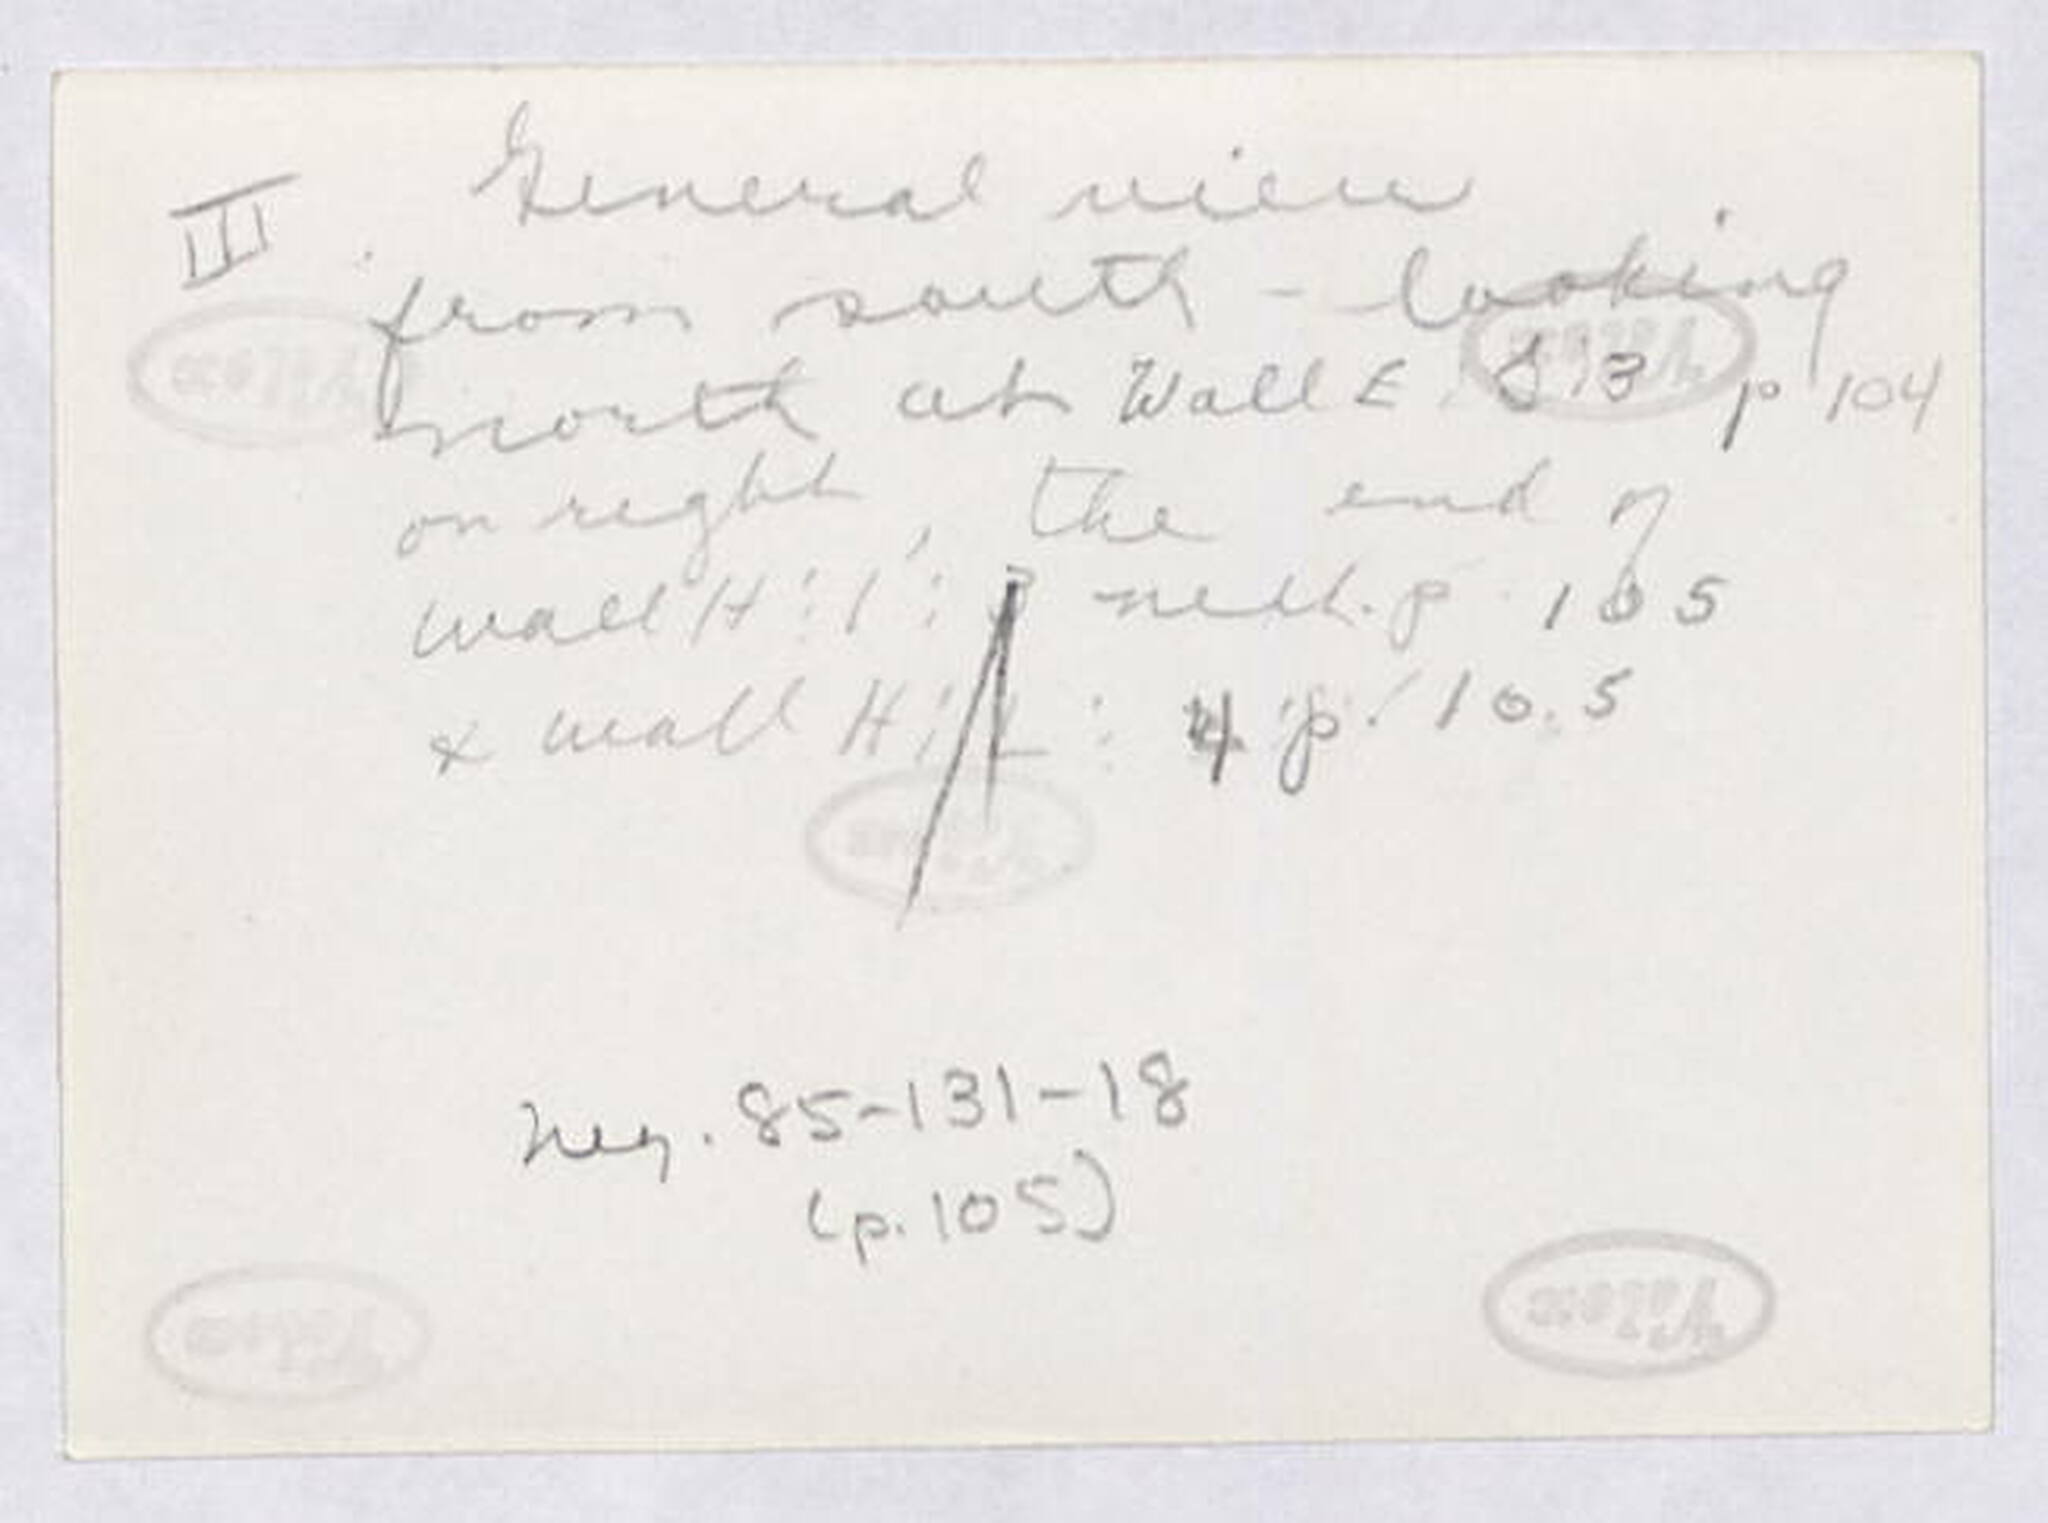 III General view
from south - looking
north at Wall E S 13 p 104
on right, the end of
wall H : 1 : 3 p 105
& wall H : 1 : 4 p. 105
Neg. 85-131-18
(p. 105)
Velox
Velox
Velox
Velox
Velox